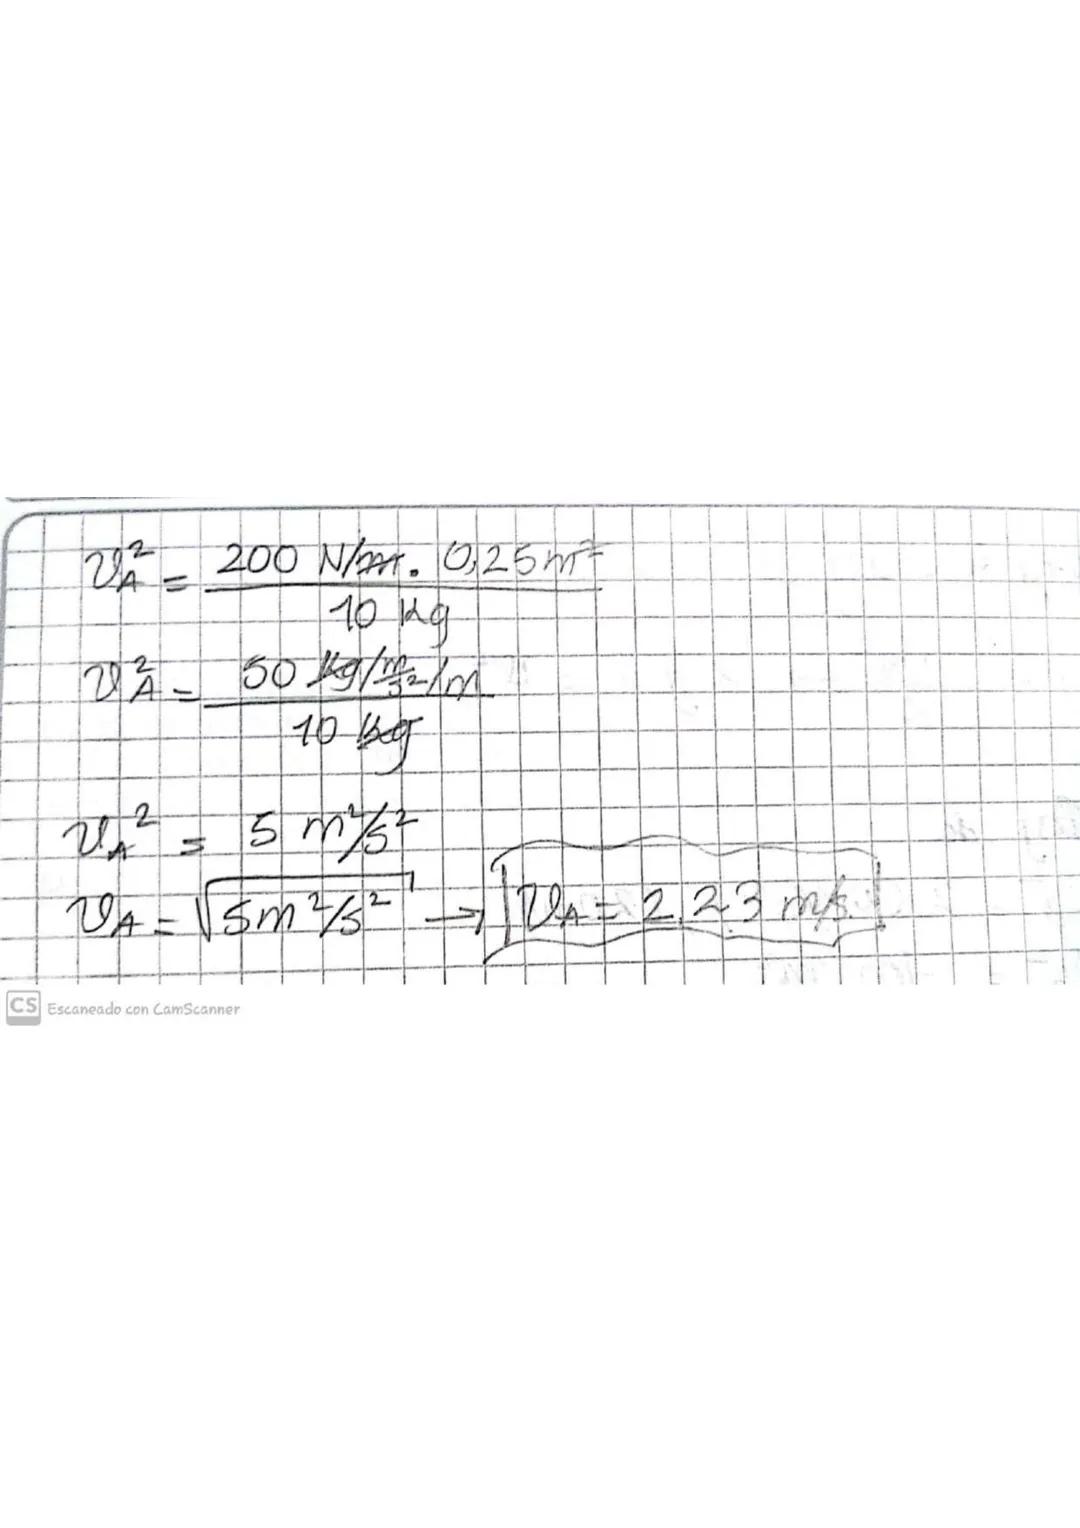 v_A² = 200 N/m . 0,25 m²
10 kg
v_A² = 50 kg/m/s²/m
10 kg
v_A² = 5 m²/s²
v_A = √5m²/s² → v_A = 2,23 m/s.
CS Escaneado con CamScanner